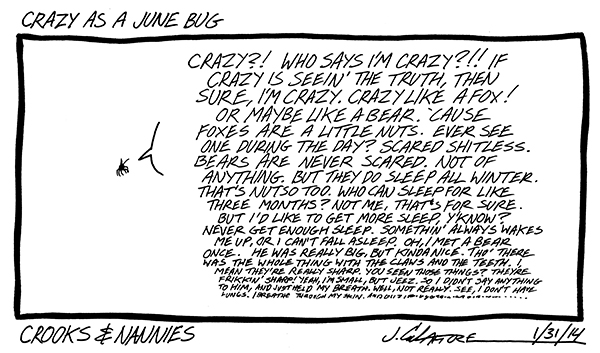 CRAZY AS A JUNE BUG
CRAZY?! WHO SAYS I'M CRAZY?!! IF
CRAZY IS SEEIN' THE TRUTH, THEN
SURE, I'M CRAZY. CRAZY LIKE A FOX!
OR MAYBE LIKE A BEAR. 'CAUSE
FOXES ARE A LITTLE NUTS. EVER SEE
ONE DURING THE DAY? SCARED SHITLESS.
BEARS ARE NEVER SCARED. NOT OF
ANYTHING. BUT THEY DO SLEEP ALL WINTER.
THAT'S NUTSO TOO. WHO CAN SLEEP FOR LIKE
THREE MONTHS? NOT ME, THAT'S FOR SURE.
BUT I'D LIKE TO GET MORE SLEEP, Y'KNOW?
NEVER GET ENOUGH SLEEP. SOMETHIN' ALWAYS WAKES
ME UP, OR I CAN'T FALL ASLEEP. OH, I MET A BEAR
ONCE. HE WAS REALLY BIG, BUT KINDA NICE. THO' THERE
WAS THE WHOLE THING WITH THE CLAWS AND THE TEETH. I
MEAN THEY'RE REALLY SHARP. YOU SEEN THOSE THINGS? THEY'RE
FRIKKIN' SHARP! YEAH, I'M SMALL, BUT JEEZ. SO I DIDN'T SAY ANYTHING
TO HIM, AND JUST HELD MY BREATH. WELL, NOT REALLY. SEE, I DON'T HAVE
LUNGS. I BREATHE THROUGH MY SKIN. AND
CROOKS & NANNIES
1/31/14